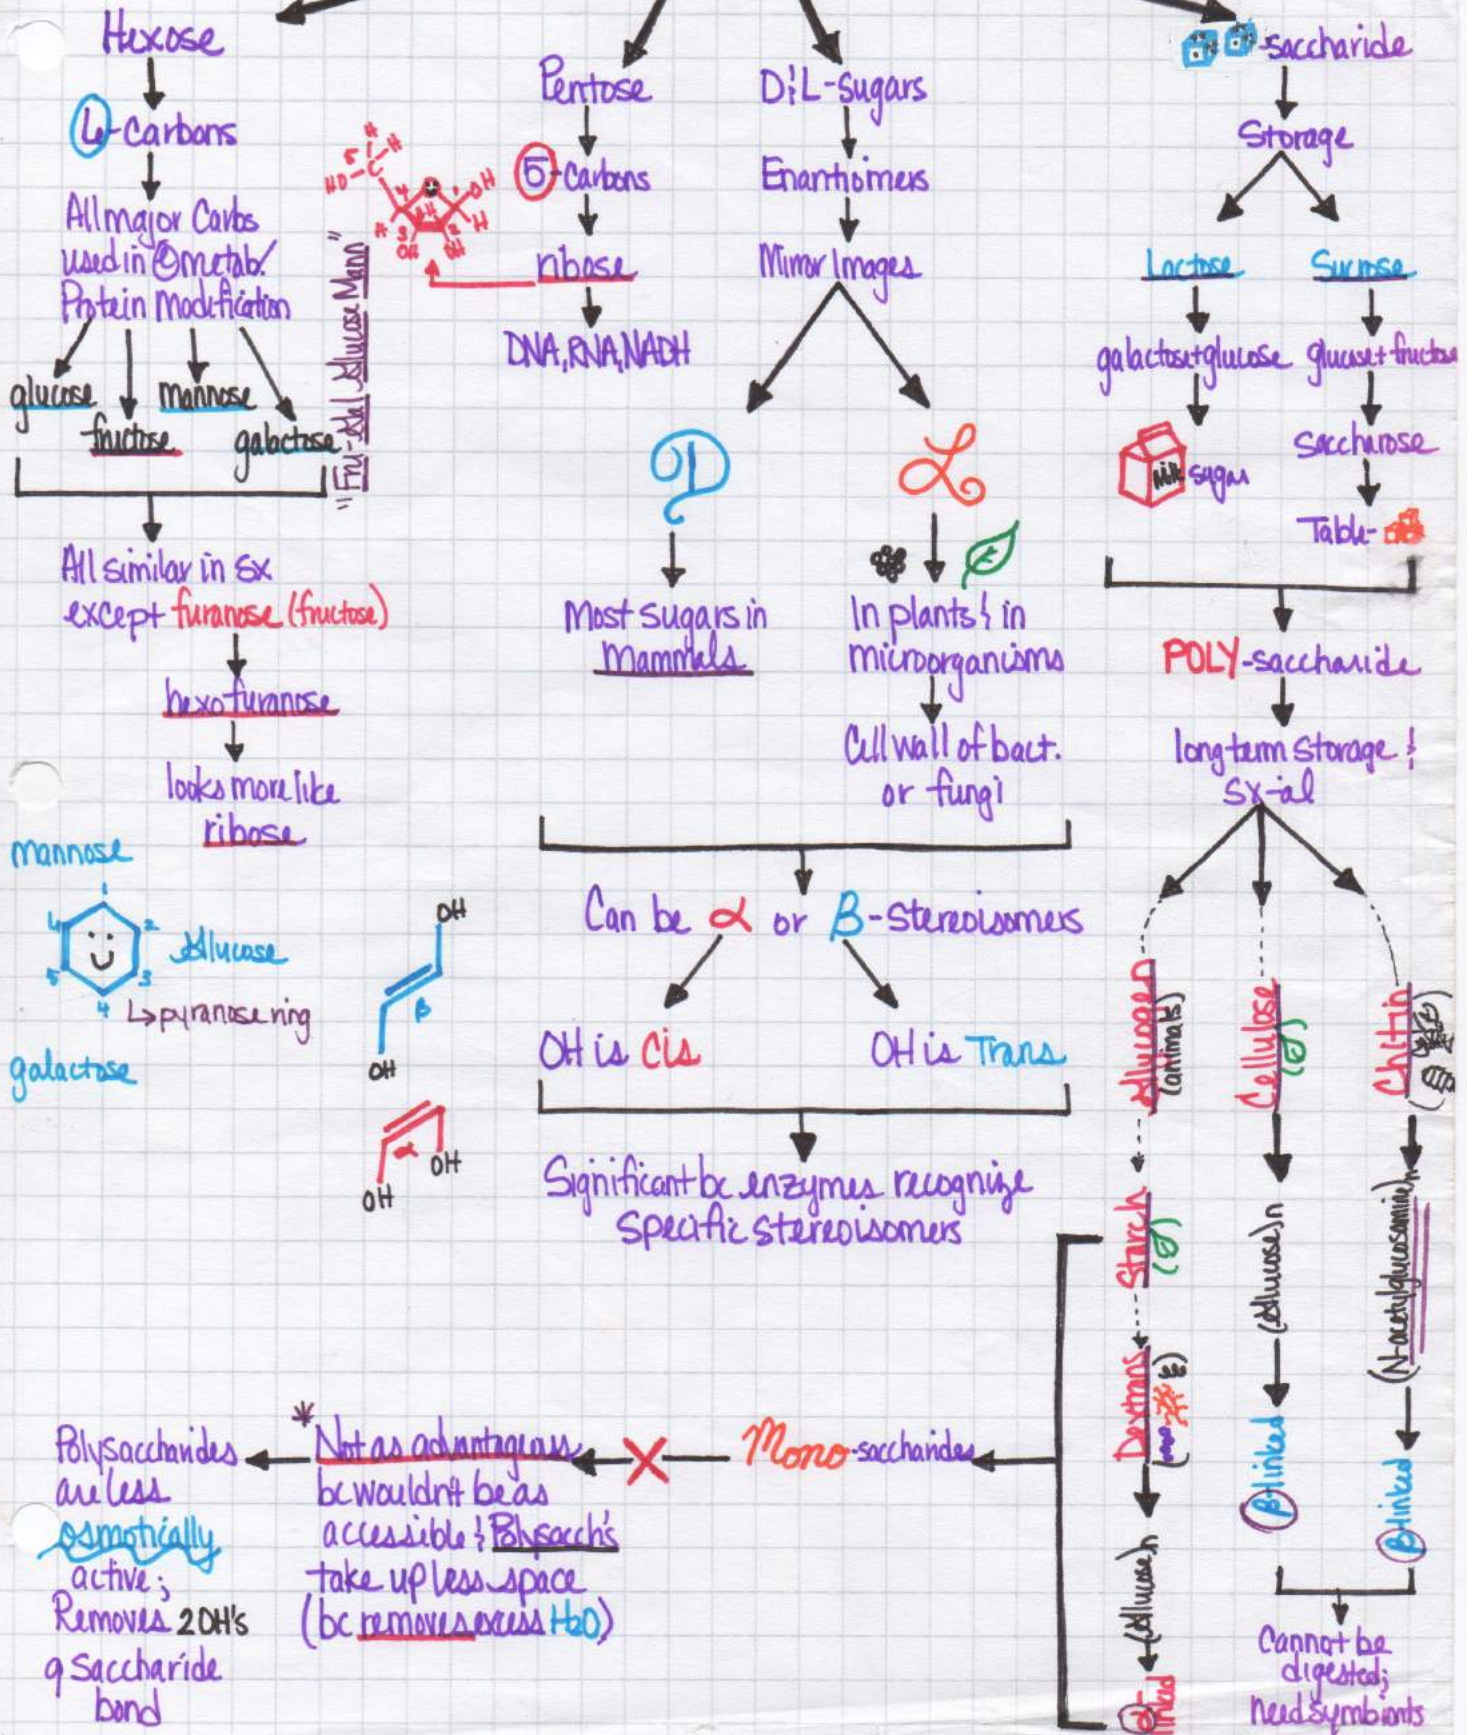 Hexose
6-Carbons
All major Carbs
used in metab/
Protein Modification
glucose
mannose
fructose
galactose
"Fru-Gal Glucose Mann"
All similar in Sx
except furanose (fructose)
hexofuranose
looks more like
ribose
mannose
1
6
2
Glucose
5
3
4
↳pyranose ring
galactose
Pentose
5-Carbons
ribose
DNA, RNA, NADH
H
H
5
C
H
HO
4
1
OH
H
H
H
3
2
OH
OH
D & L-Sugars
Enantiomers
Mirror Images
D
L
Most Sugars in
Mammals
In plants & in
microorganisms
Cell wall of bact.
or fungi
Can be α or β-Stereoisomers
OH is Cis
OH is Trans
Significant bc enzymes recognize
Specific stereoisomers
OH
β
OH
α
OH
OH
-saccharide
Storage
Lactose
Sucrose
galactose+glucose
glucose+fructose
Milk sugar
Saccharose
Table-
POLY-saccharide
long term storage &
Sx-al
Glycogen
(animals)
Starch
Dextrans
(Glucose)n
α-linked
Cellulose
(Glucose)n
β-linked
Chitin
(N-acetylglucosamine)n
β-linked
Cannot be
digested;
need symbionts
Mono-saccharides
X
*
Not as advantageous
bc wouldn't be as
accessible & Polysacch's
take up less space
(bc removes excess H2O)
Polysaccharides
are less
osmotically
active;
Removes 2OH's
q saccharide
bond